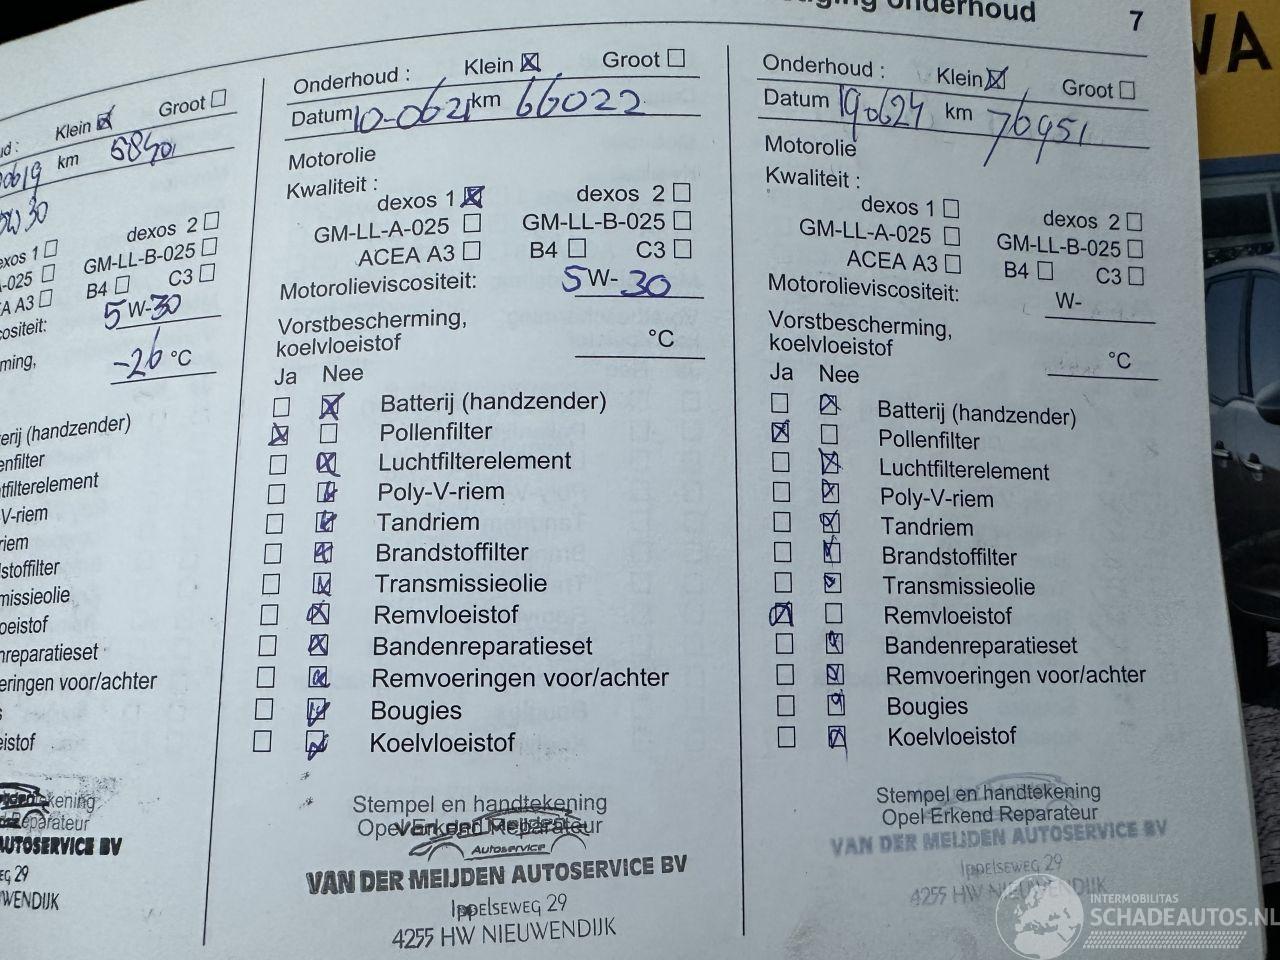 onderhoud 7
Klein Groot
km 58401
W30
dexos 1 dexos 2
GM-LL-B-025
B4 C3
5 W-30
-26 °C
enfilter
filterelement
V-riem
riem
missieolie
reparatieset
eringen voor/achter
AUTOSERVICE BV
29
WENDIJK
Onderhoud : Klein Groot
Datum 10-0621 km 66022
Motorolie
Kwaliteit :
dexos 1 dexos 2
GM-LL-A-025 GM-LL-B-025
ACEA A3 B4 C3
Motorolieviscositeit: 5 W-30
Vorstbescherming,
koelvloeistof °C
Ja Nee
Batterij (handzender)
Pollenfilter
Luchtfilterelement
Poly-V-riem
Tandriem
Brandstoffilter
Transmissieolie
Remvloeistof
Bandenreparatieset
Remvoeringen voor/achter
Bougies
Koelvloeistof
Stempel en handtekening
Opel Erkend Reparateur
Autoservice
VAN DER MEIJDEN AUTOSERVICE BV
Ippelseweg 29
4255 HW NIEUWENDIJK
Onderhoud : Klein Groot
Datum 190624 km 76951
Motorolie
Kwaliteit :
dexos 1 dexos 2
GM-LL-A-025 GM-LL-B-025
ACEA A3 B4 C3
Motorolieviscositeit: W-
Vorstbescherming,
koelvloeistof °C
Ja Nee
Batterij (handzender)
Pollenfilter
Luchtfilterelement
Poly-V-riem
Tandriem
Brandstoffilter
Transmissieolie
Remvloeistof
Bandenreparatieset
Remvoeringen voor/achter
Bougies
Koelvloeistof
Stempel en handtekening
Opel Erkend Reparateur
VAN DER MEIJDEN AUTOSERVICE BV
Ippelseweg 29
4255 HW NIEUWENDIJK
INTERMOBILITAS
SCHADEAUTOS.NL